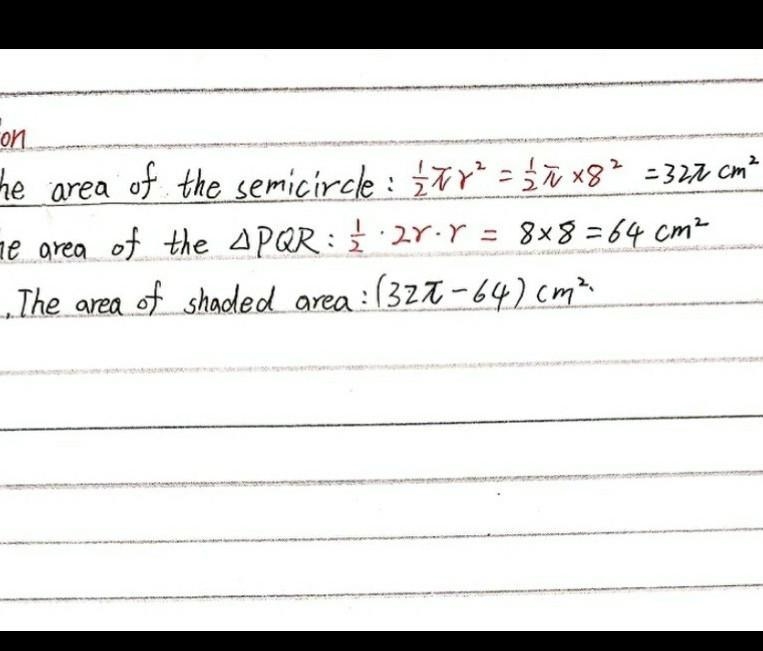 on
he area of the semicircle : ½πr² = ½π×8² = 32π cm²
e area of the △PQR : ½·2r·r = 8×8 = 64 cm²
. The area of shaded area : (32π-64) cm².